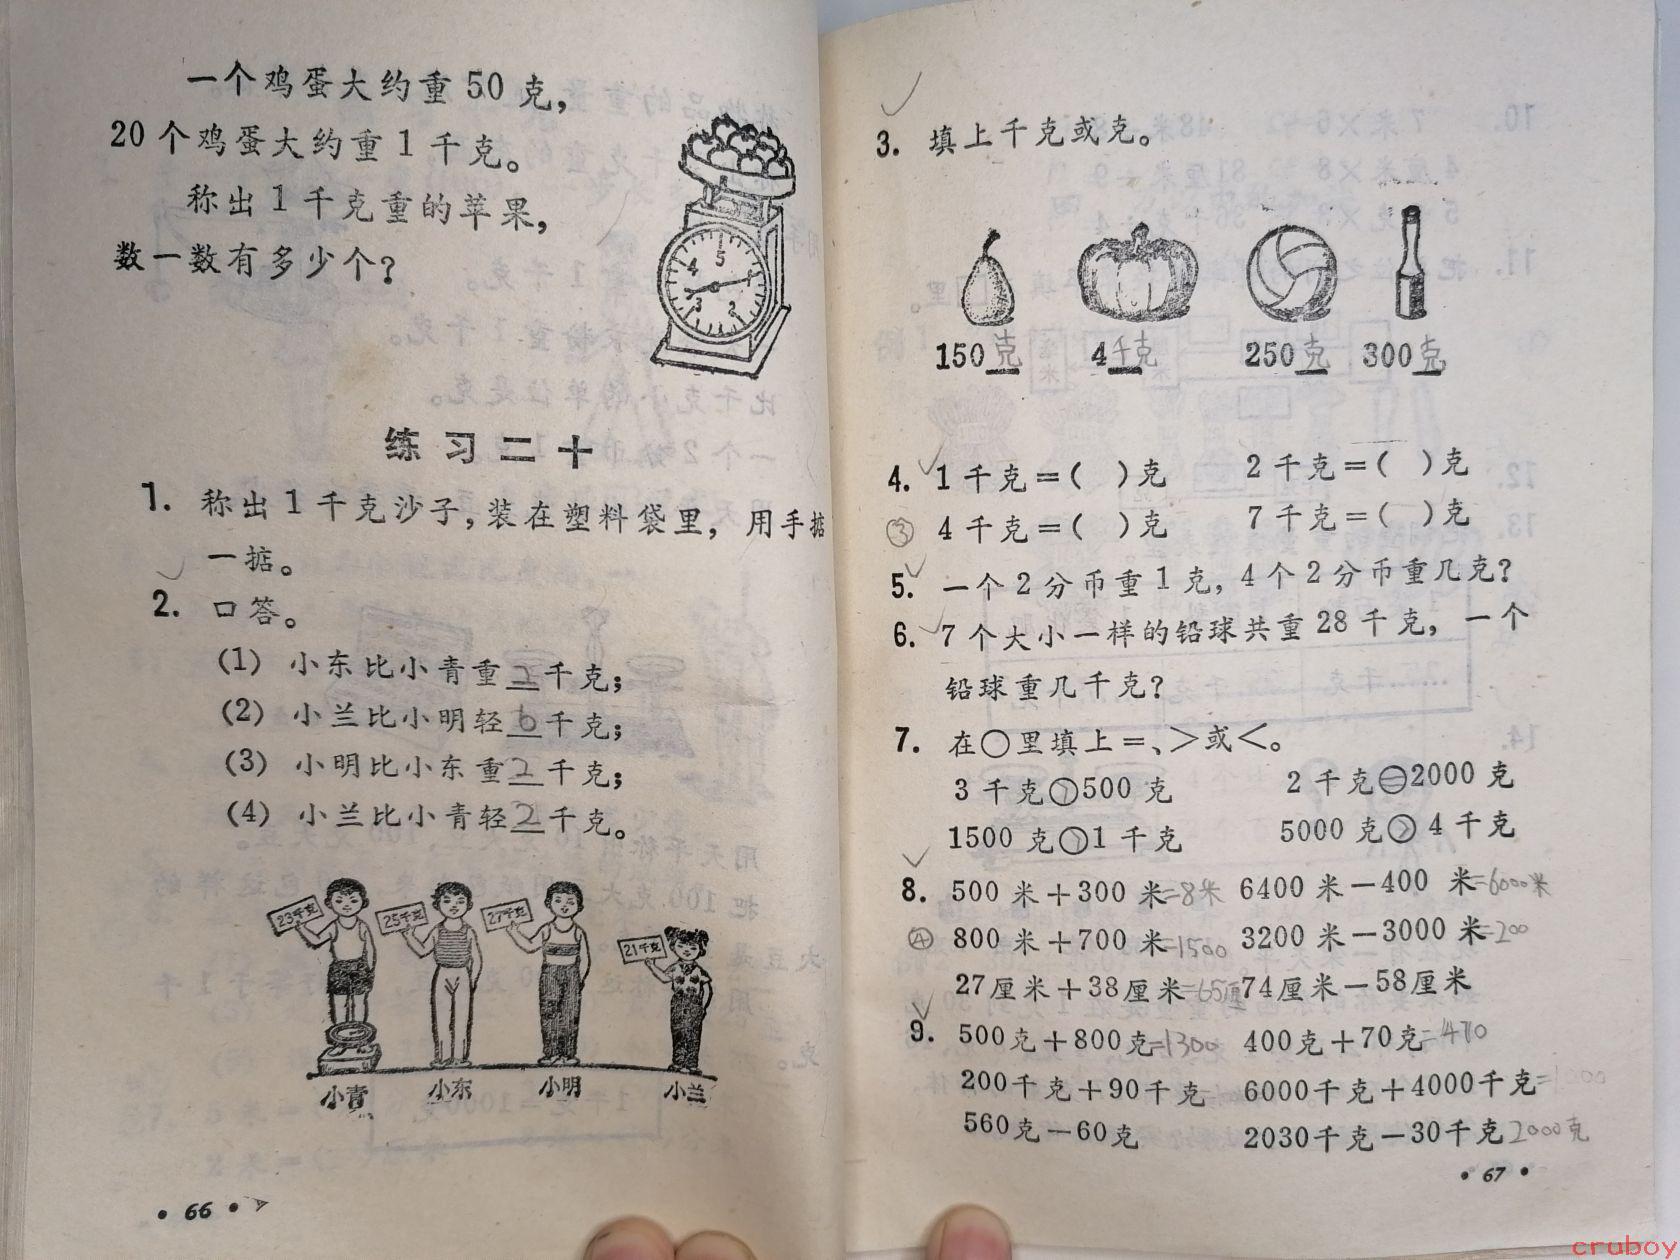 一个鸡蛋大约重50克，
20个鸡蛋大约重1千克。
称出1千克重的苹果，
数一数有多少个？
5
4
3
2
1
练习二十
1. 称出1千克沙子，装在塑料袋里，用手掂
一掂。
2. 口答。
(1) 小东比小青重2千克；
(2) 小兰比小明轻6千克；
(3) 小明比小东重2千克；
(4) 小兰比小青轻2千克。
23千克 25千克 27千克 21千克
小青 小东 小明 小兰
• 66 •
3. 填上千克或克。
150克 4千克 250克 300克
4. 1千克＝( )克 2千克＝( )克
③ 4千克＝( )克 7千克＝( )克
5. 一个2分币重1克，4个2分币重几克？
6. 7个大小一样的铅球共重28千克，一个
铅球重几千克？
7. 在○里填上＝、＞或＜。
3千克 500克 2千克＝2000克
1500克 1千克 5000克＞4千克
8. 500米＋300米=8米 6400米－400米=6000米
④ 800米＋700米=1500 3200米－3000米=200
27厘米＋38厘米=65厘 74厘米－58厘米
9. 500克＋800克=1300 400克＋70克=470
200千克＋90千克 6000千克＋4000千克
560克－60克 2030千克－30千克2000克
• 67 •
cruboy